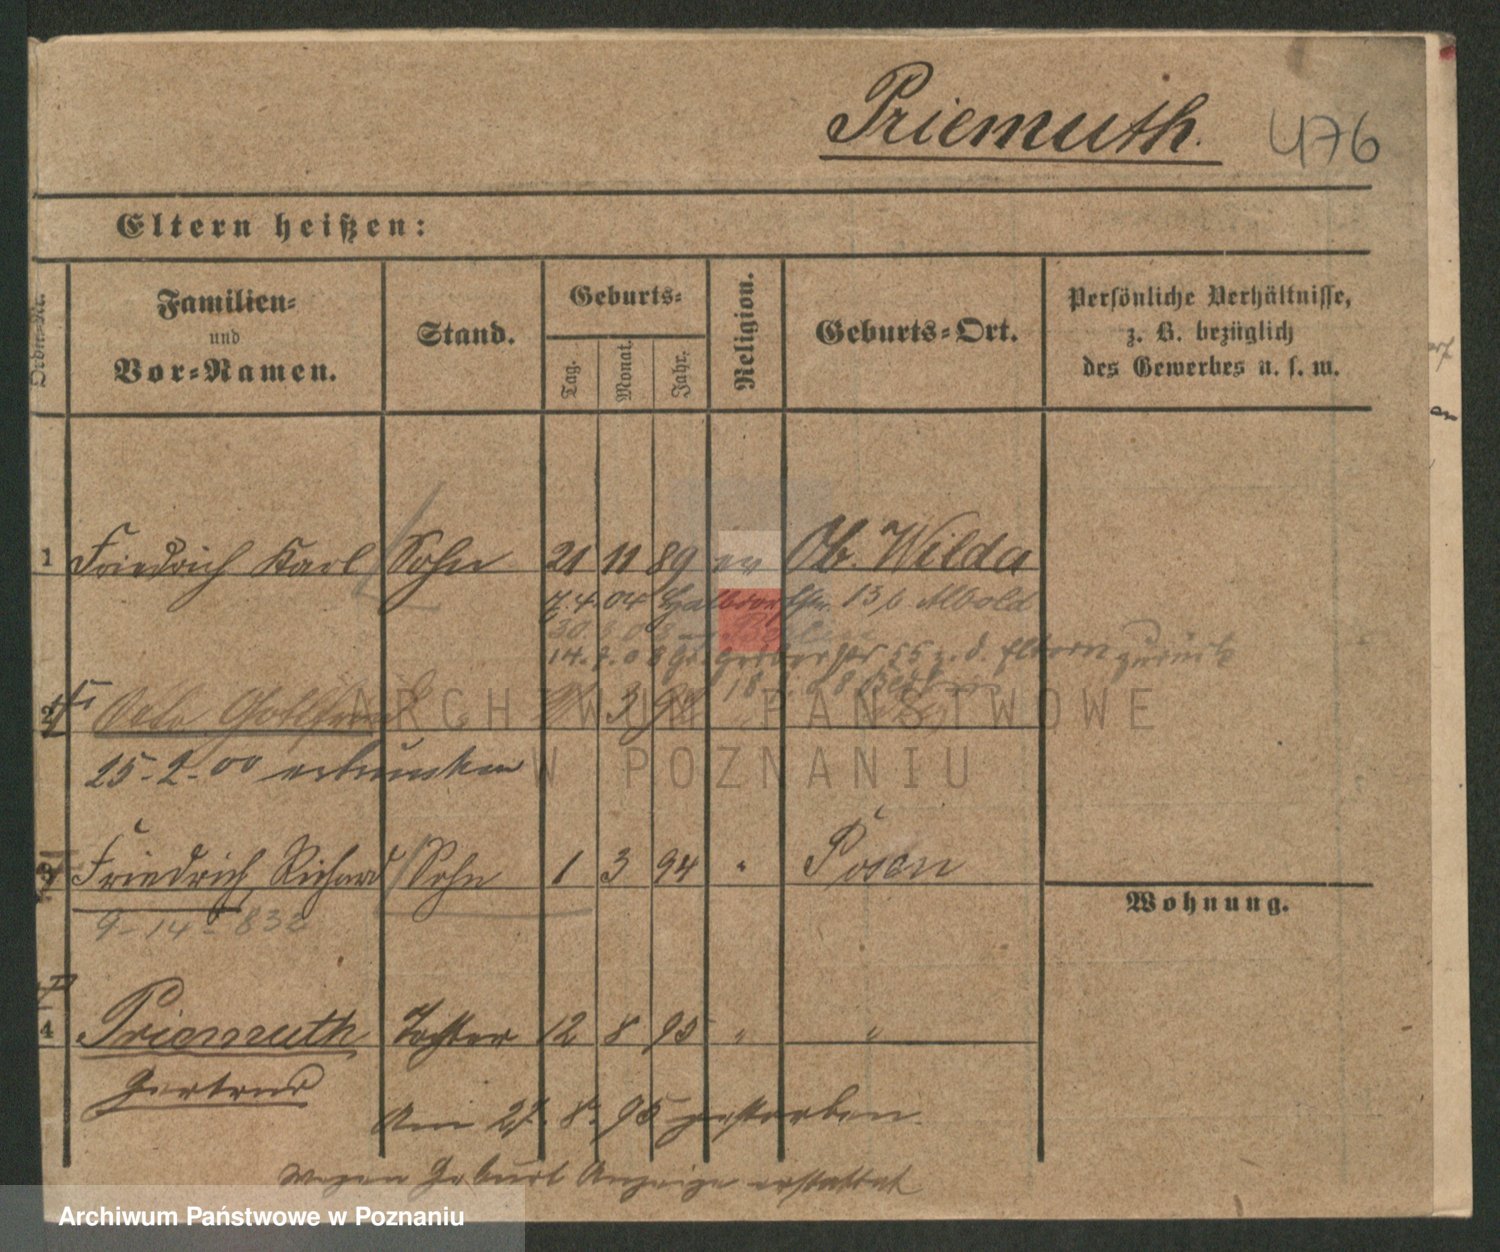 Priemuth. 476
Eltern heißen:
Ordn.-Nr. Familien- und Vor-Namen. Stand. Geburts- Tag. Monat. Jahr. Religion. Geburts-Ort. Persönliche Verhältnisse, z. B. bezüglich des Gewerbes u. s. w.
1 Friedrich Karl Sohn 21 11 89 ev Ob. Wilda
7.4.04 Halbdorfstr. 13
14. 7. 08 Gr. Gerberstr. z. d. Eltern zurück
2 3
25-2-00 ertrunken
3 Friedrich Richard Sohn 1 3 94 " Posen
9-14-832
Wohnung.
4 Priemuth Tochter 12 8 95 " "
Gertrud
Am 27. 8. 95 gestorben.
wegen Geburt Anzeige erstattet
ARCHIWUM PAŃSTWOWE
W POZNANIU
Archiwum Państwowe w Poznaniu